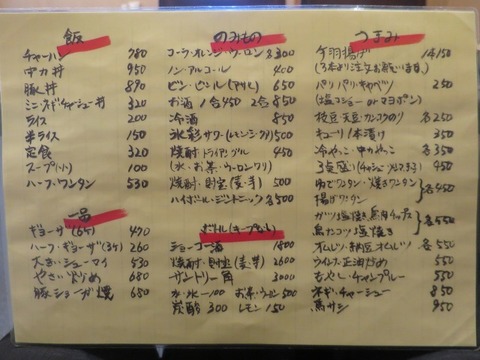 飯
チャーハン 780
中カ丼 950
豚丼 890
ミニ・ネギチャーシュー丼 320
ライス 200
半ライス 150
定食 320
スープ(小) 100
ハーフ・ワンタン 530
一品
ギョーザ(6ヶ) 470
ハーフ・ギョーザ(3ヶ) 260
大きいシューマイ 530
やさい炒め 680
豚ショーガ焼 680
のみもの
コーラ・オレンジ・ウーロン 各300
ノン・アルコール 400
ビン・ビール(アサヒ) 650
お酒 1合450 2合850
冷酒 850
氷彩サワー(レモンシークワ)500
焼酎・トライアングル 450
(水・お茶・ウーロンワリ)
焼酎・財宝(麦・芋) 500
ハイボール・ジントニック 各500
ボトル(キープなし)
ショーコー酒 1800
焼酎・財宝(麦・芋) 2600
サントリー角 3000
水・氷-100 お茶・ウーロン500
炭酸 300 レモン 150
つまみ
手羽揚げ 1本150
(3本より注文お願います。)
パリパリキャベツ 250
(塩コショー orマヨポン)
枝豆・天豆・ 各250
キューリ1本漬け 350
冷やっこ・中カやっこ 各350
3点盛り 450
ゆでワンタン・焼きワンタン
揚げワンタン 各450
ガツ塩焼き
鳥カツコ 塩焼き 各550
オムレツ・納豆オムレツ 各550
ウインナー正油炒め 550
もやし・チャンプルー 550
ネギ・チャーシュー 850
馬サシ 950